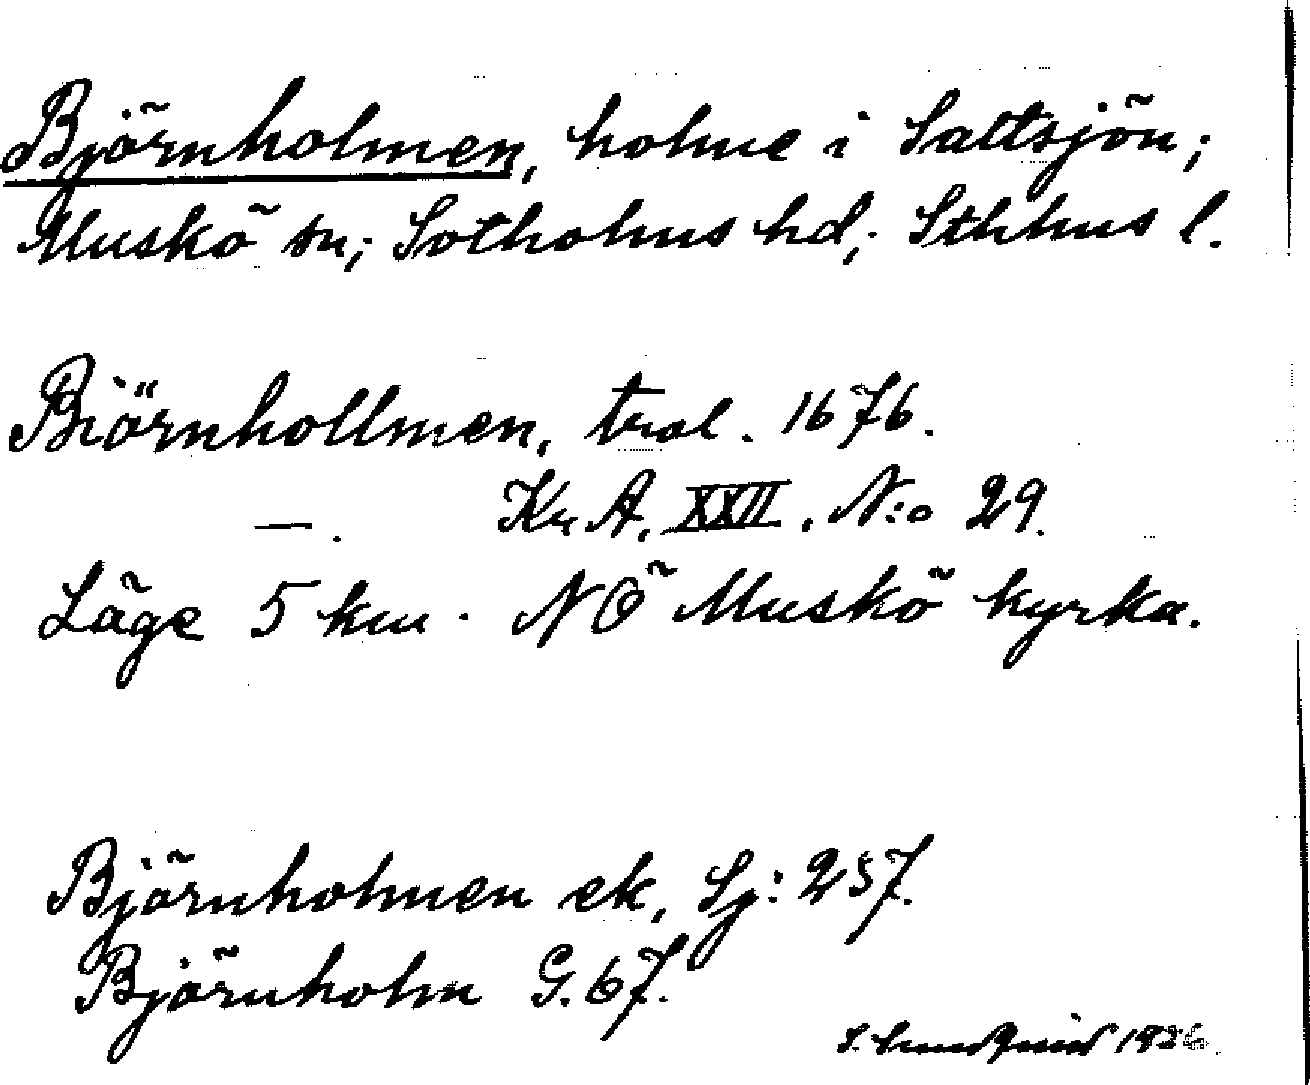 Björnholmen, holme i Saltsjön;
Muskö sn; Sotholms hd; Sthlms l.
Biörnhollmen, trol. 1676.
—. Kr. A. XXII. N:o 29.
Läge 5 km. NÖ Muskö kyrka.
Björnholmen ek, Sj: 257.
Björnholm G. 67.
S. 1926.